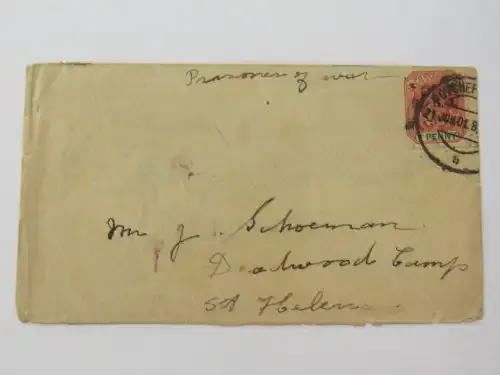 Prisoner of war
21 JUN 01
PENNY
b
Mr J. Schoeman
Deadwood Camp
St Helena